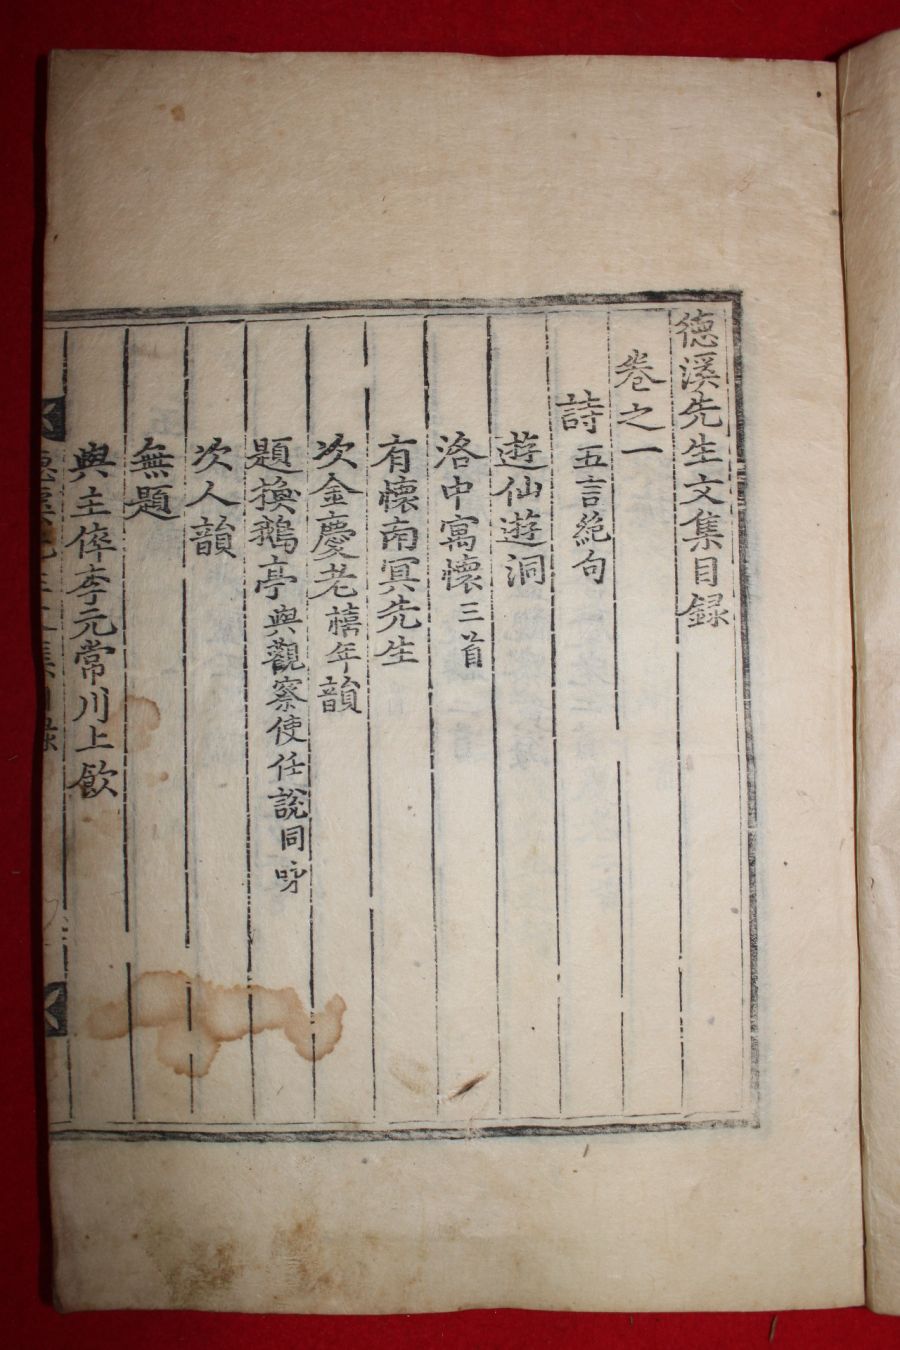 德溪先生文集目録
卷之一
詩 五言絶句
遊仙遊洞
洛中寓懷 三首
有懷南冥先生
次金慶老 禧年 韻
題換鵝亭 與觀察使任說同咏
次人韻
無題
與主倅李元常川上飮